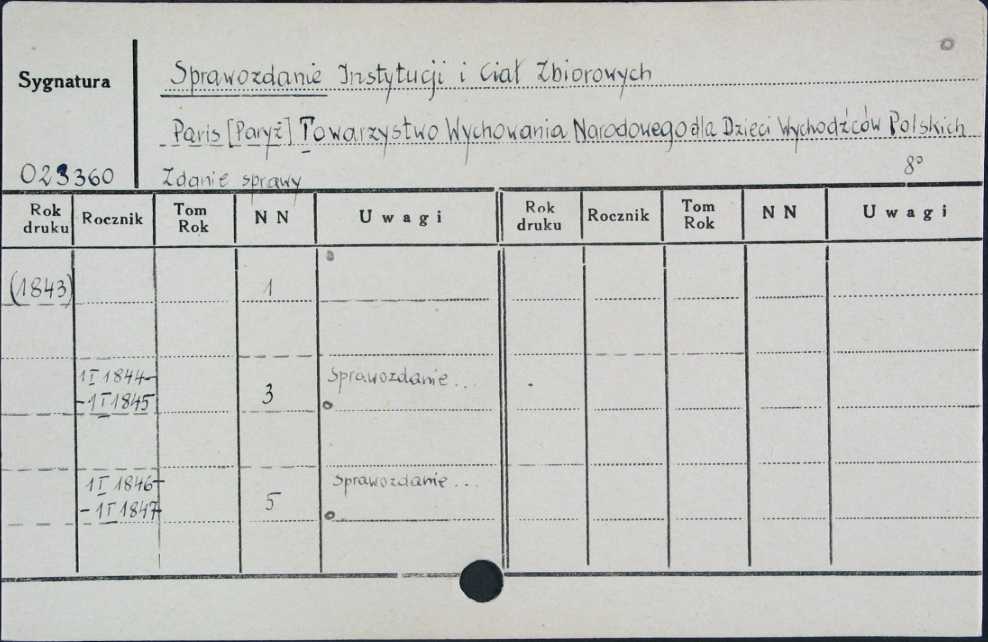 Sygnatura Sprawozdanie Instytucji i Ciał Zbiorowych
Paris [Paryż] Towarzystwo Wychowania Narodowego dla Dzieci Wychodźców Polskich
023360 Zdanie sprawy 8°
Rok druku Rocznik Tom Rok N N Uwagi Rok druku Rocznik Tom Rok N N Uwagi
(1843) 1
1 I 1844-
- 1 I 1845 3 Sprawozdanie...
1 I 1846-
- 1 I 1847 5 Sprawozdanie...